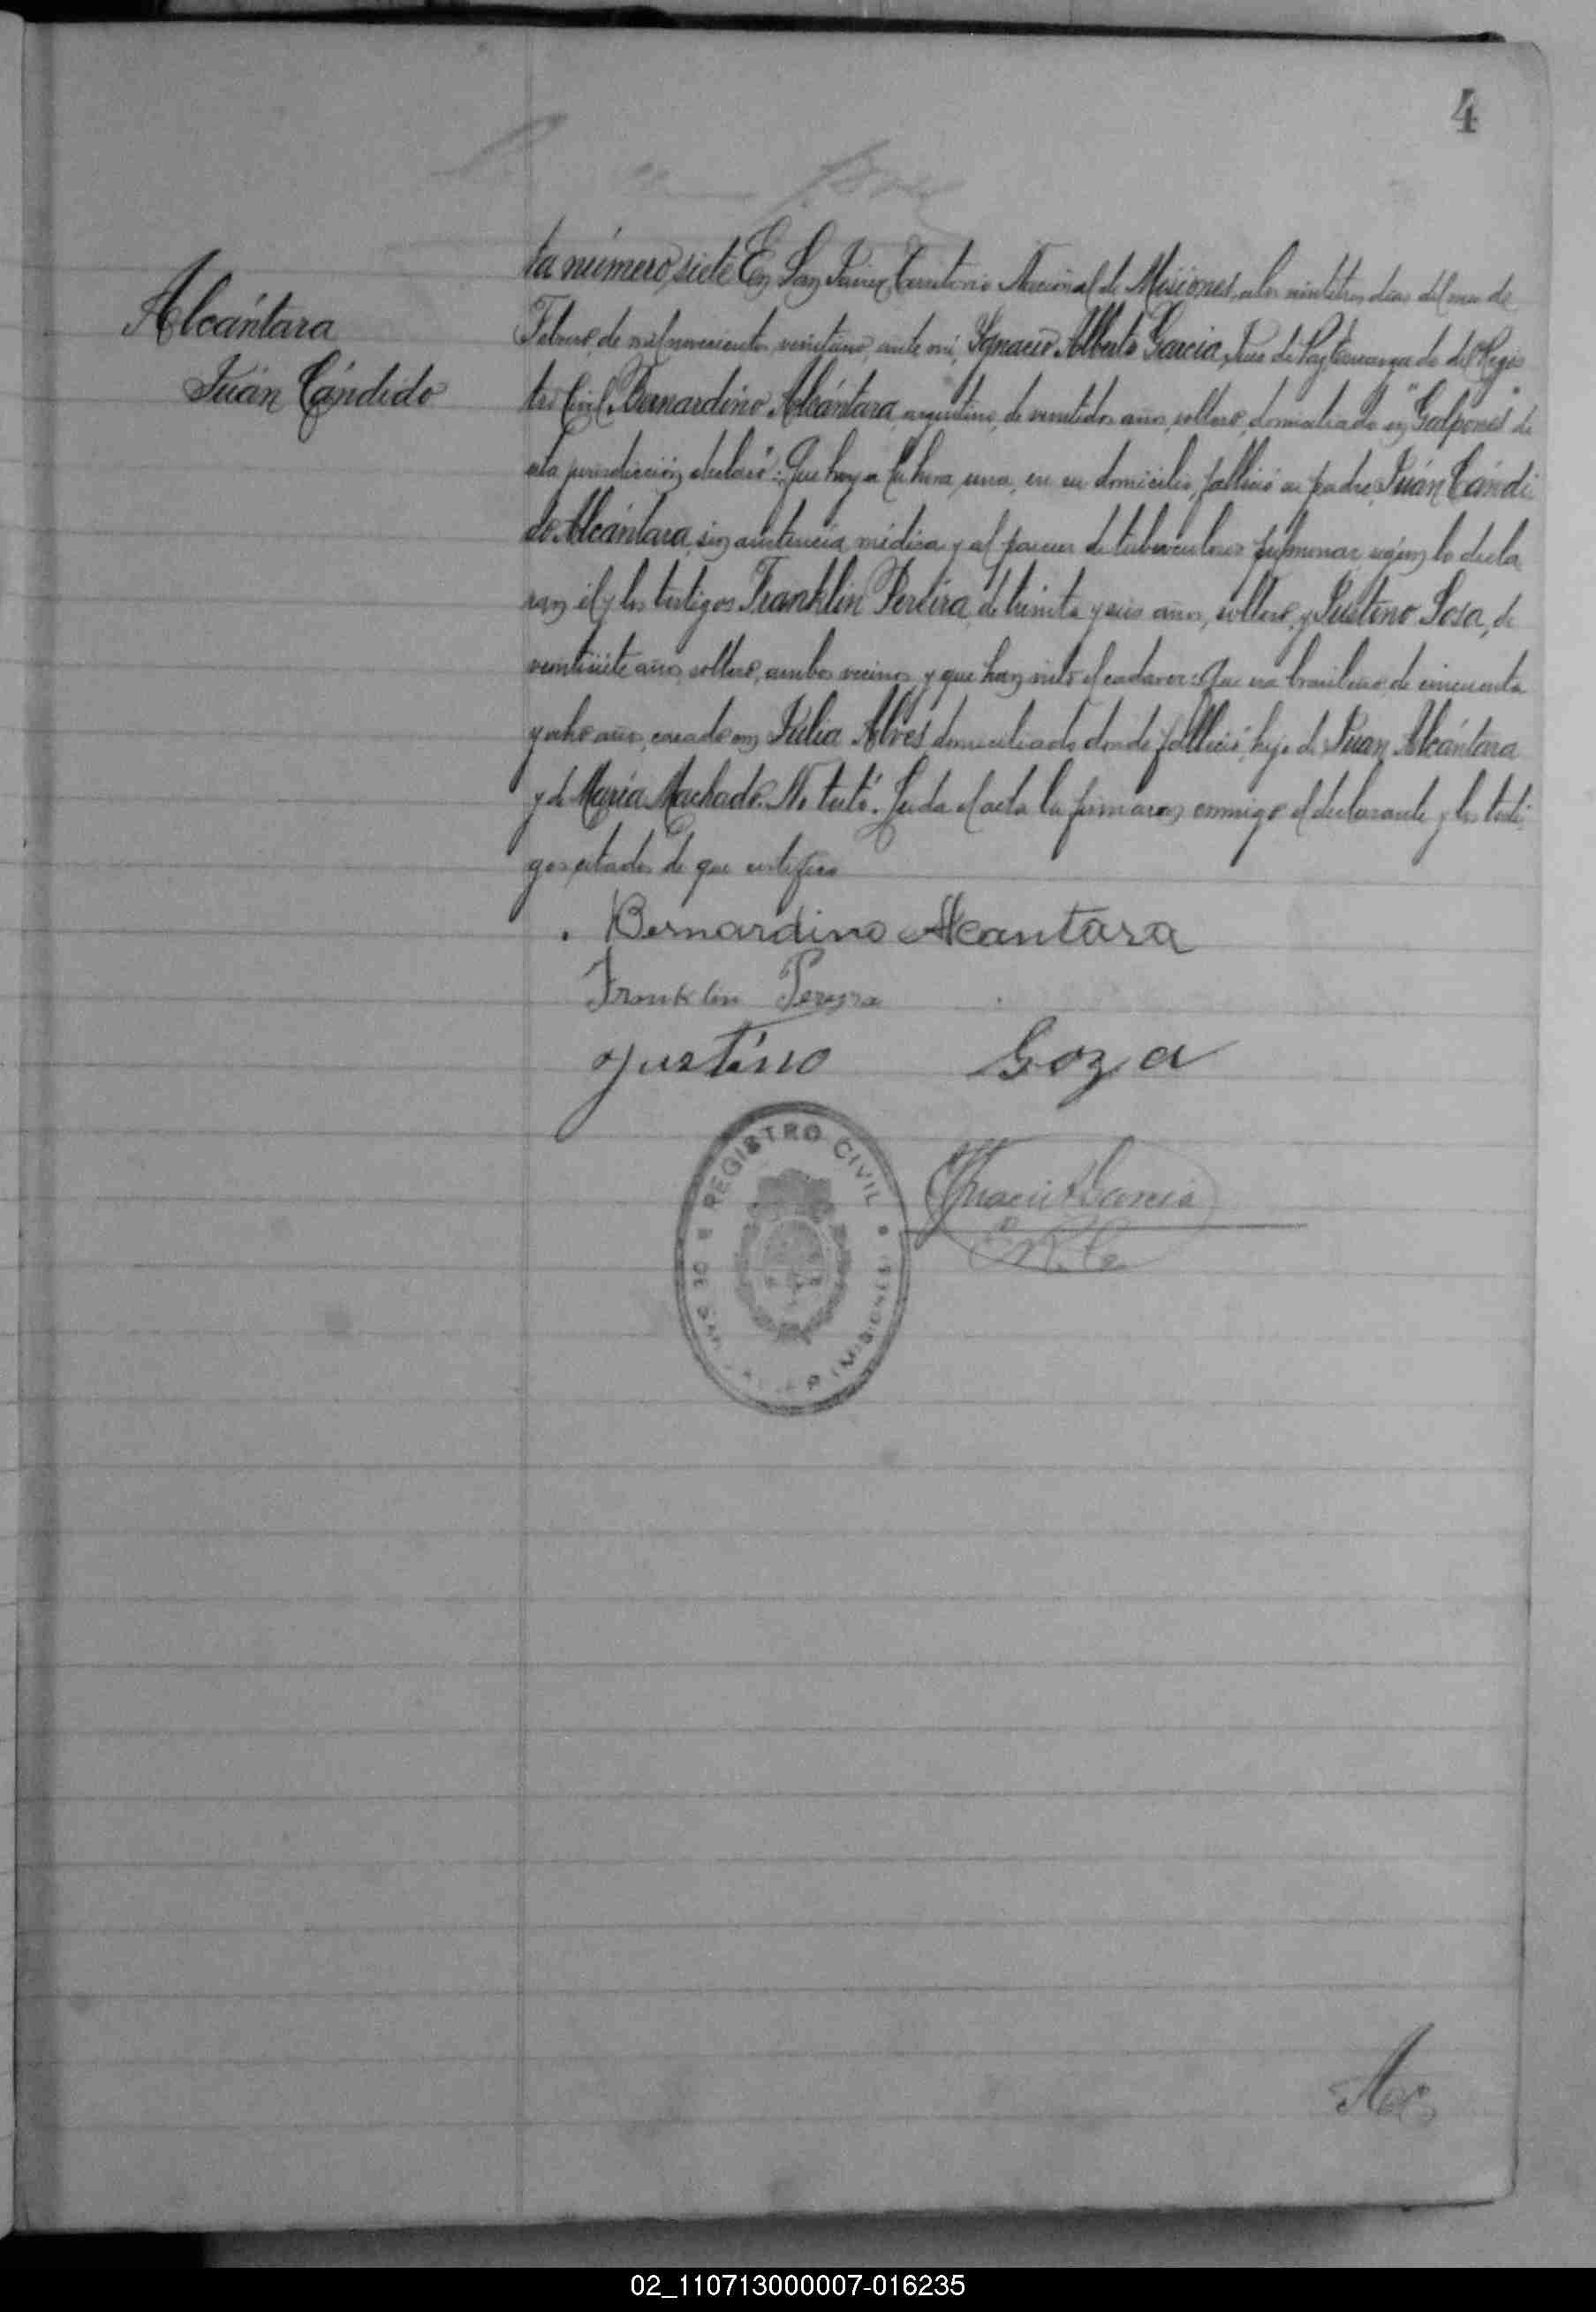 4
Alcántara
Juán Cándido
ta número siete En San Javier, Territorio Nacional de Misiones, a los veintitres dias del mes de
Febrero, de mil novecientos veintiuno, ante mi, Ygnacio Alberto Garcia, Juez de Paz encargado del Regis
tro Civil, Bernardino Alcántara, argentino, de veintidos años, soltero, domiciliado en "Galpones" de
esta jurisdicción, declaró: Que hoy a la hora una, en su domicilio, falleció su padre, Juán Cándi
do Alcántara, sin asistencia médica y al parecer de tuberculosis pulmonar, según lo decla
ran él y los testigos Franklin Pereira, de treinta y seis años, soltero, y Justino Sosa, de
veintisiete años, soltero, ambos vecinos y que han visto el cadaver: Que era brasilero, de cincuenta
y ocho años, casado con Julia Alves, domiciliado donde falleció, hijo de Juan Alcántara
y de María Machado. No testó. Leida el acta la firmaron conmigo el declarante y los testi
gos citados de que certifico
Bernardino Alcantara
Franklin Pereyra
Justino Goza
REGISTRO CIVIL
(MISIONES)